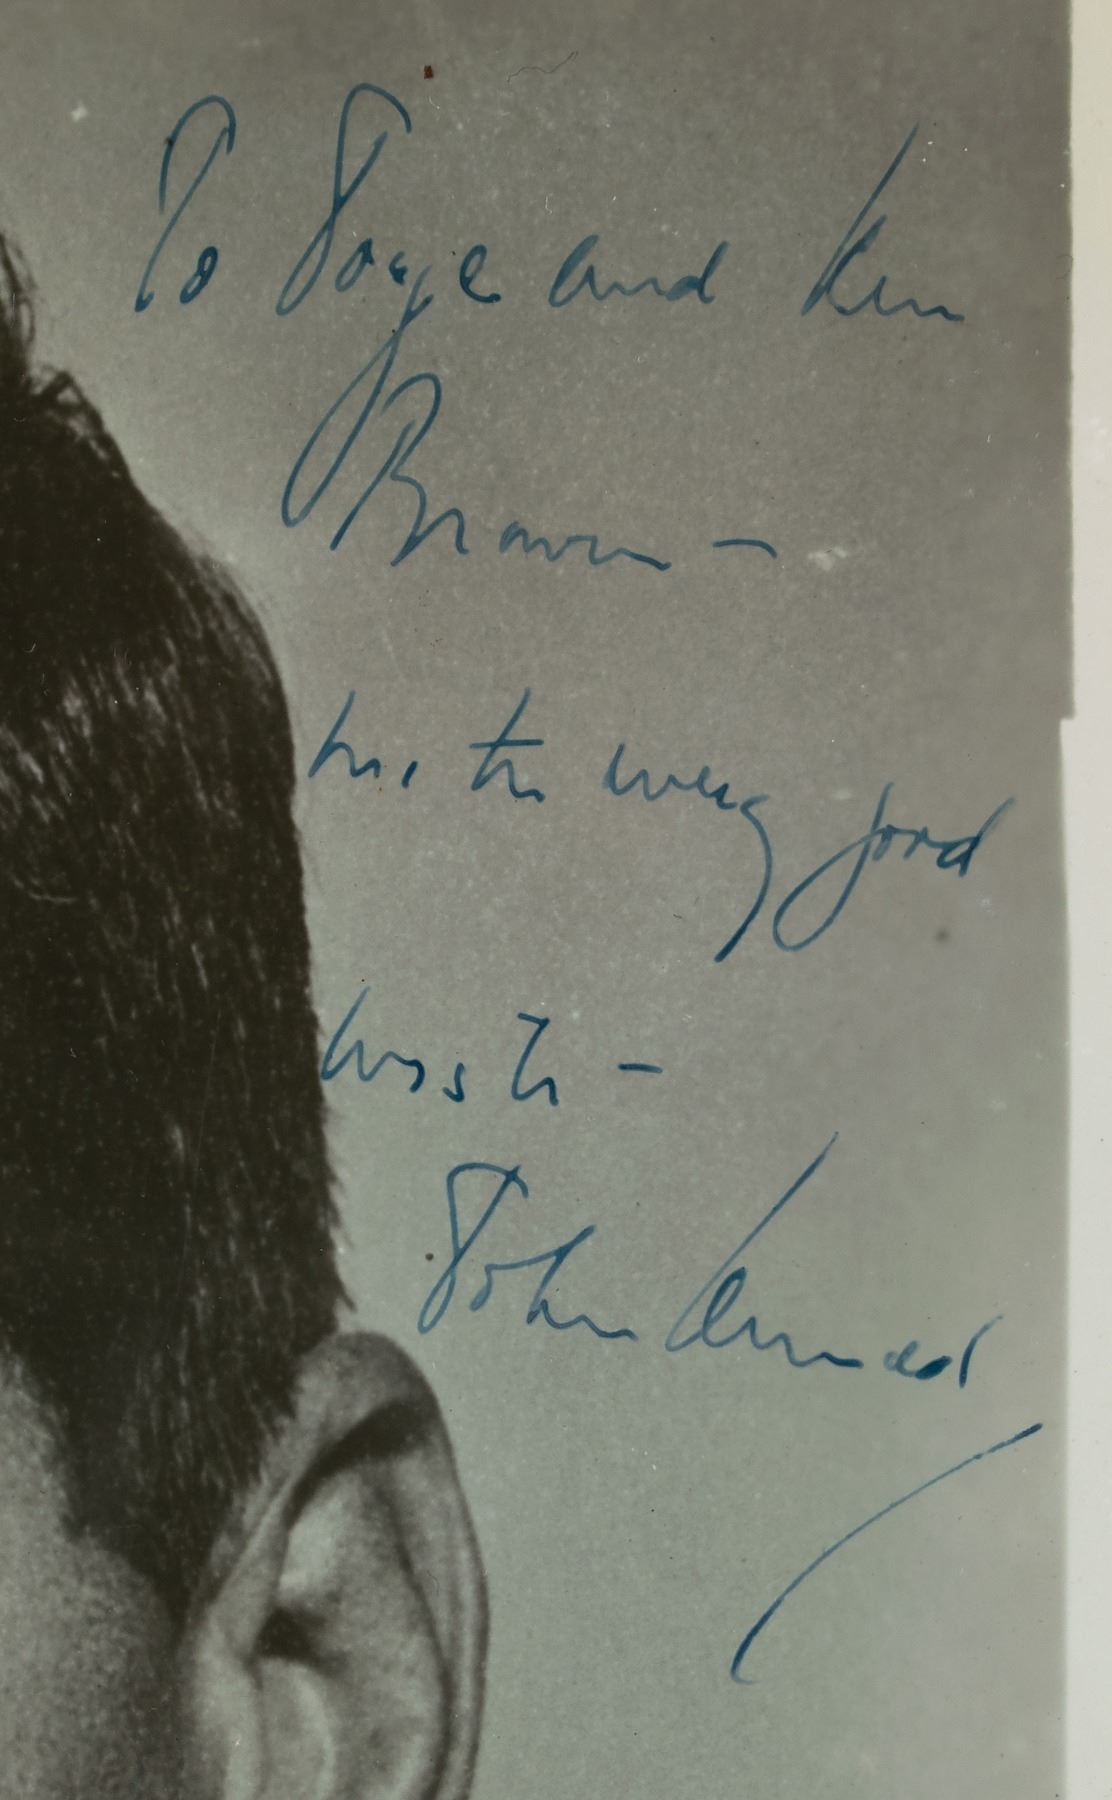 To Joyce and Ken
Brown -
with every good
wish -
John Kennedy